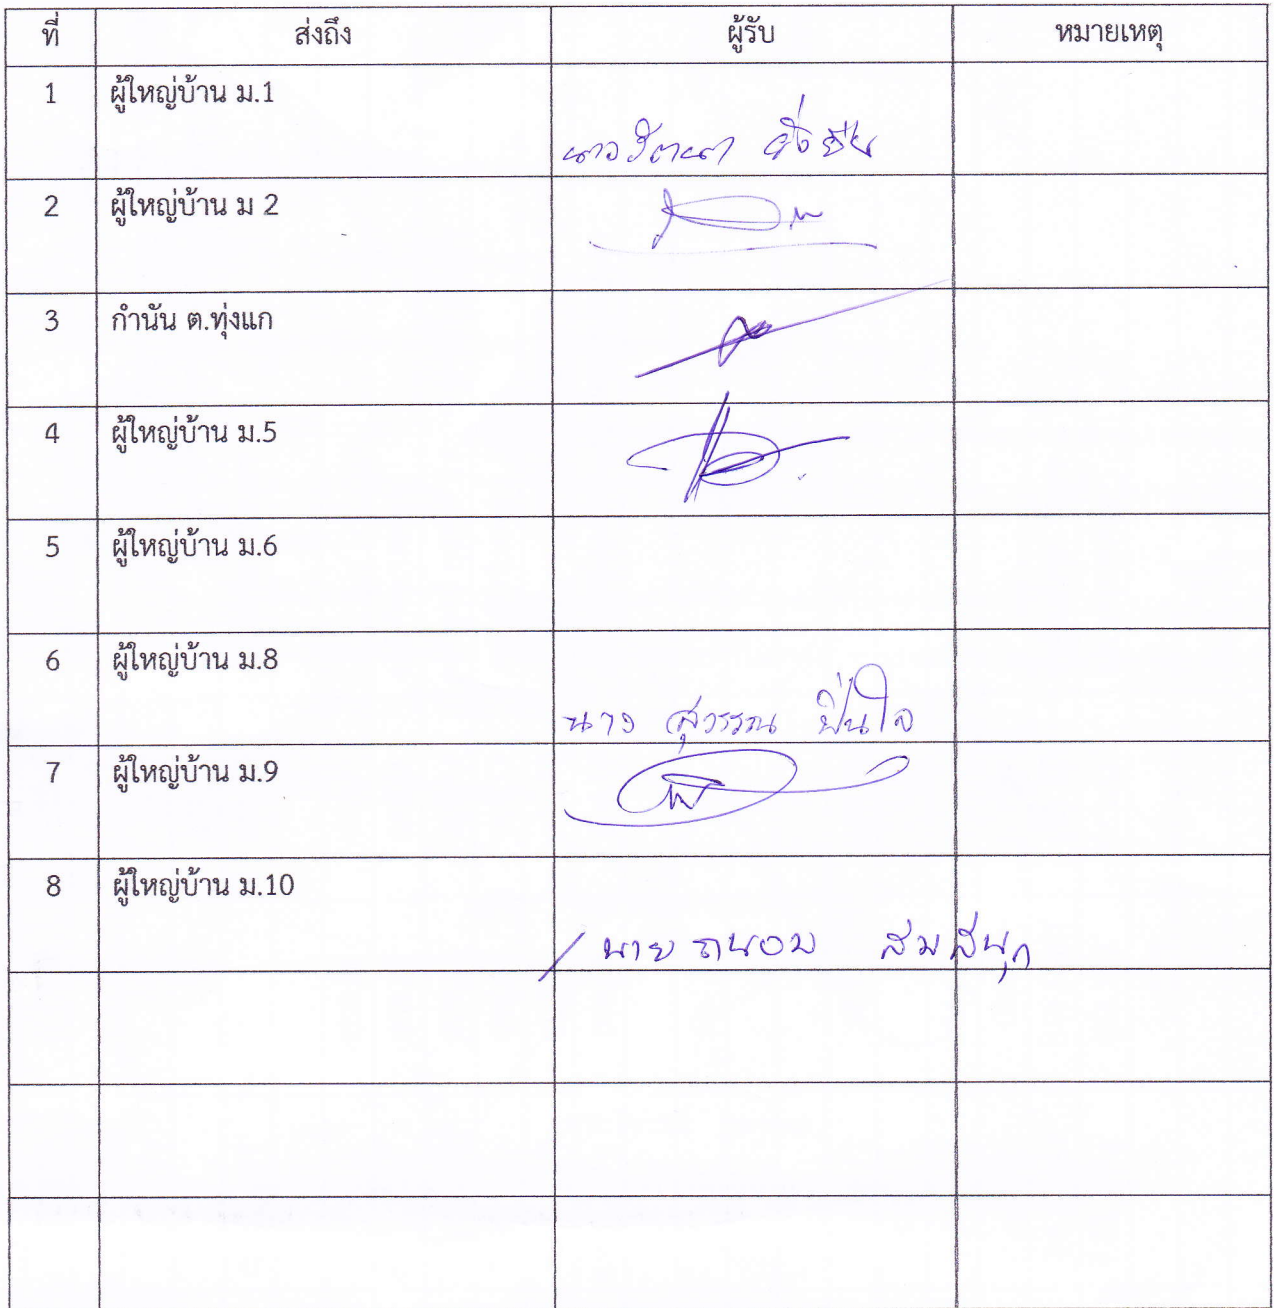 ที่ ส่งถึง ผู้รับ หมายเหตุ
1 ผู้ใหญ่บ้าน ม.1
2 ผู้ใหญ่บ้าน ม 2
3 กำนัน ต.ทุ่งแก
4 ผู้ใหญ่บ้าน ม.5
5 ผู้ใหญ่บ้าน ม.6
6 ผู้ใหญ่บ้าน ม.8
นาง สุวรรณ ปิ่นใจ
7 ผู้ใหญ่บ้าน ม.9
8 ผู้ใหญ่บ้าน ม.10
/ นายถนอม